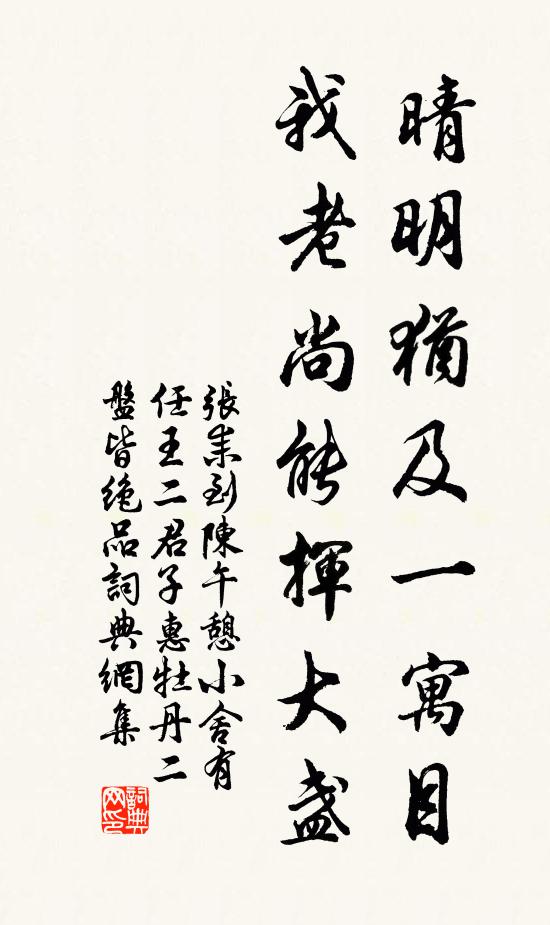 晴明猶及一寓目
我老尚能揮大盏
張耒到陳午憩小舍有
任王二君子惠牡丹二
盤皆絶品詞典網集
詞典
网印